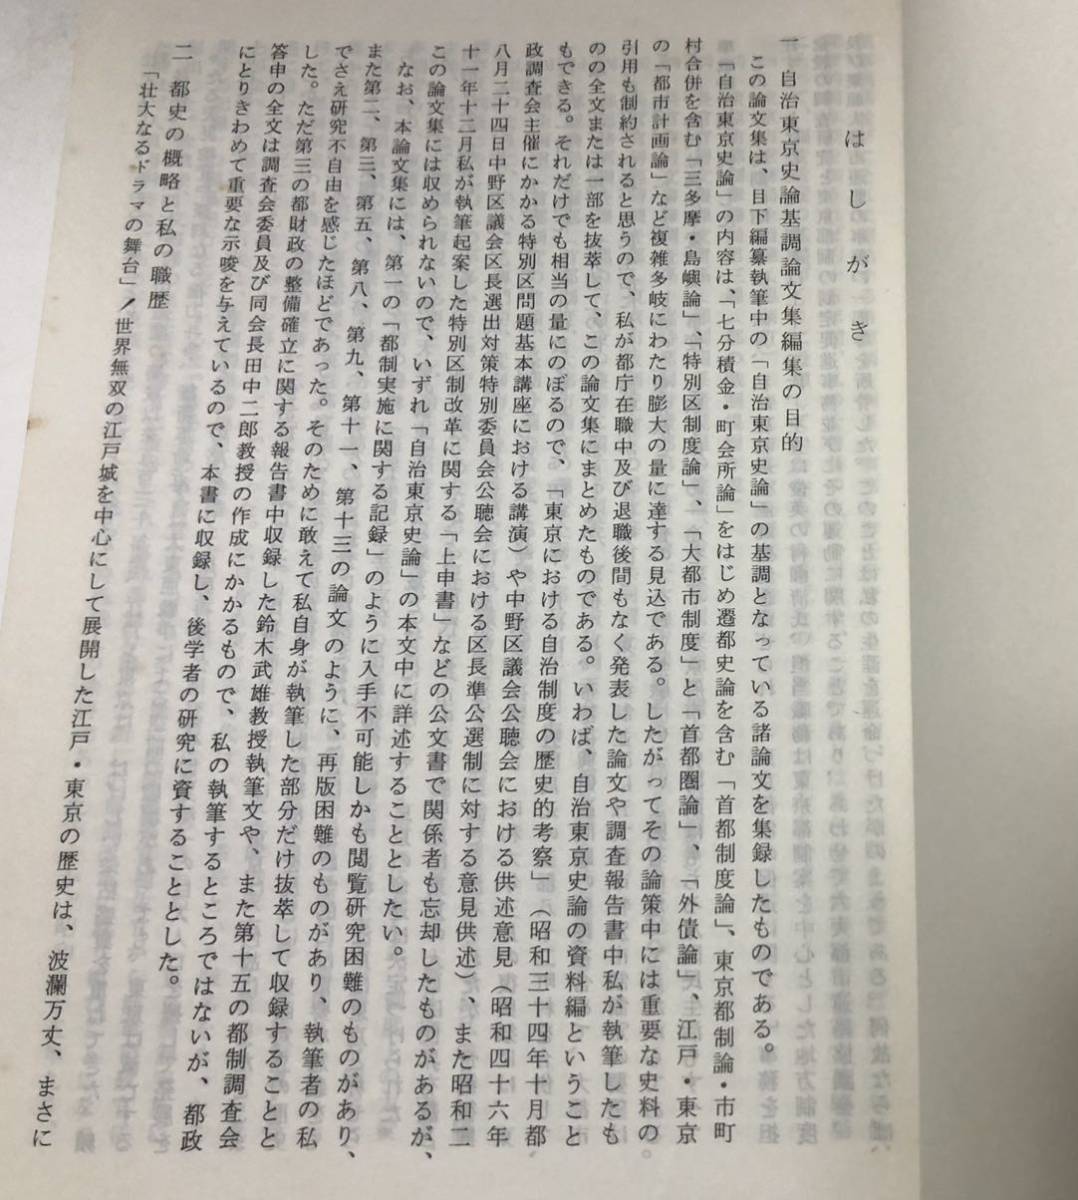 はしがき
一　自治東京史論基調論文集編集の目的
この論文集は、目下編纂執筆中の「自治東京史論」の基調となっている諸論文を集録したものである。
「自治東京史論」の内容は、「七分積金・町会所論」をはじめ遷都史論を含む「首都制度論」、東京都制論・市町
村合併を含む「三多摩・島嶼論」、「特別区制度論」、「大都市制度」と「首都圏論」、「外債論」、江戸・東京
の「都市計画論」など複雑多岐にわたり膨大の量に達する見込である。したがってその論策中には重要な史料の
引用も制約されると思うので、私が都庁在職中及び退職後間もなく発表した論文や調査報告書中私が執筆したも
のの全文または一部を抜萃して、この論文集にまとめたものである。いわば、自治東京史論の資料編ということ
もできる。それだけでも相当の量にのぼるので、「東京における自治制度の歴史的考察」（昭和三十四年十月都
政調査会主催にかかる特別区問題基本講座における講演）や中野区議会公聴会における供述意見（昭和四十六年
八月二十四日中野区議会区長選出対策特別委員会公聴会における区長準公選制に対する意見供述）、また昭和二
十一年十二月私が執筆起案した特別区制改革に関する「上申書」などの公文書で関係者も忘却したものがあるが、
この論文集には収められないので、いずれ「自治東京史論」の本文中に詳述することとしたい。
なお、本論文集には、第一の「都制実施に関する記録」のように入手不可能しかも閲覧研究困難のものがあり、
また第二、第三、第五、第八、第九、第十一、第十三の論文のように、再版困難のものがあり、執筆者の私
でさえ研究不自由を感じたほどであった。そのために敢えて私自身が執筆した部分だけ抜萃して収録することと
した。ただ第三の都財政の整備確立に関する報告書中収録した鈴木武雄教授執筆文や、また第十五の都制調査会
答申の全文は調査会委員及び同会長田中二郎教授の作成にかかるもので、私の執筆するところではないが、都政
にとりきわめて重要な示唆を与えているので、本書に収録し、後学者の研究に資することとした。
二　都史の概略と私の職歴
「壮大なるドラマの舞台」！世界無双の江戸城を中心にして展開した江戸・東京の歴史は、波瀾万丈、まさに